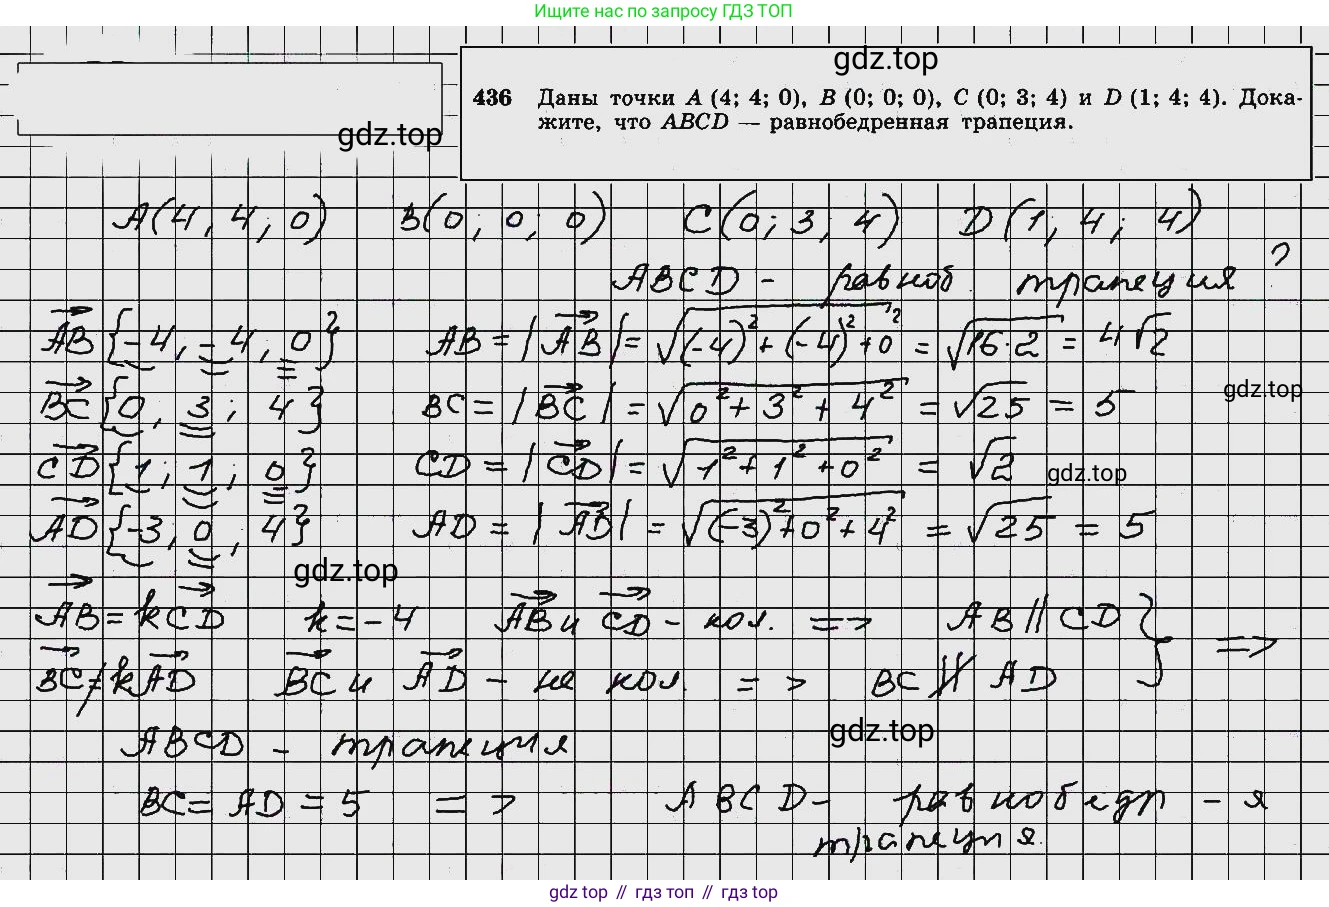 Ищите нас по запросу ГДЗ ТОП
gdz.top
436 Даны точки A (4; 4; 0), B (0; 0; 0), C (0; 3; 4) и D (1; 4; 4). Дока-
жите, что ABCD — равнобедренная трапеция.
gdz.top
A(4, 4; 0) B(0; 0; 0) C(0; 3; 4) D(1; 4; 4)
ABCD - равноб. трапеция ?
AB{-4, -4, 0} AB = |AB| = √(-4)² + (-4)² + 0² = √16·2 = 4√2
BC{0, 3; 4} BC = |BC| = √0² + 3² + 4² = √25 = 5
gdz.top
CD{1; 1; 0} CD = |CD| = √1² + 1² + 0² = √2
gdz.top
AD{-3, 0, 4} AD = |AD| = √(-3)² + 0² + 4² = √25 = 5
gdz.top
AB = kCD k = -4 AB и CD - кол. => AB || CD } =>
BC ≠ kAD BC и AD - не кол. => BC ∦ AD
gdz.top
ABCD - трапеция
BC = AD = 5 => ABCD - равнобедр - я
трапеция.
gdz top // гдз топ // gdz top